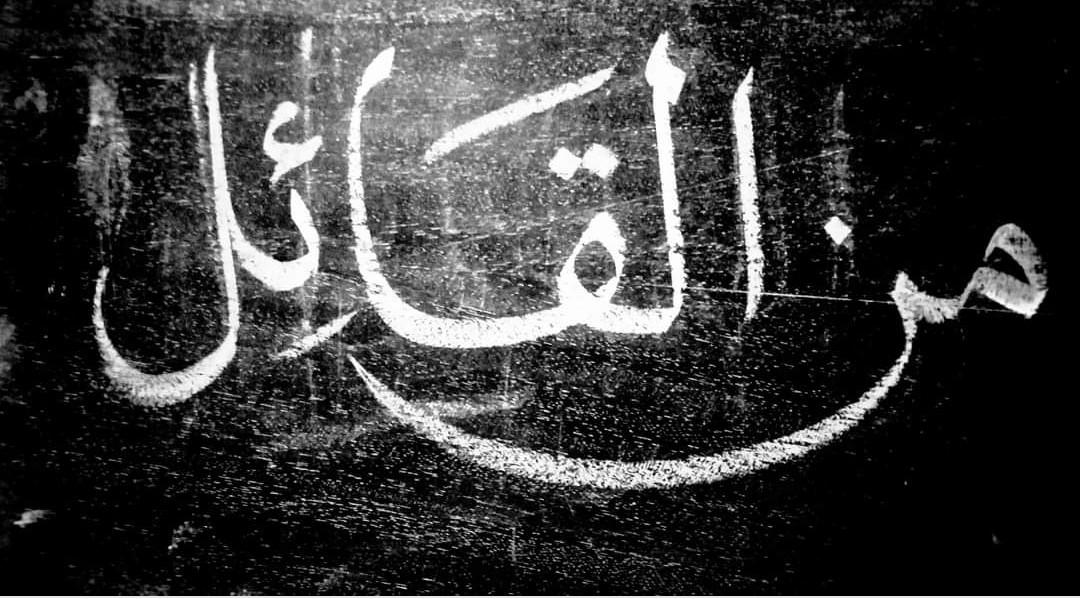 من القَائِل